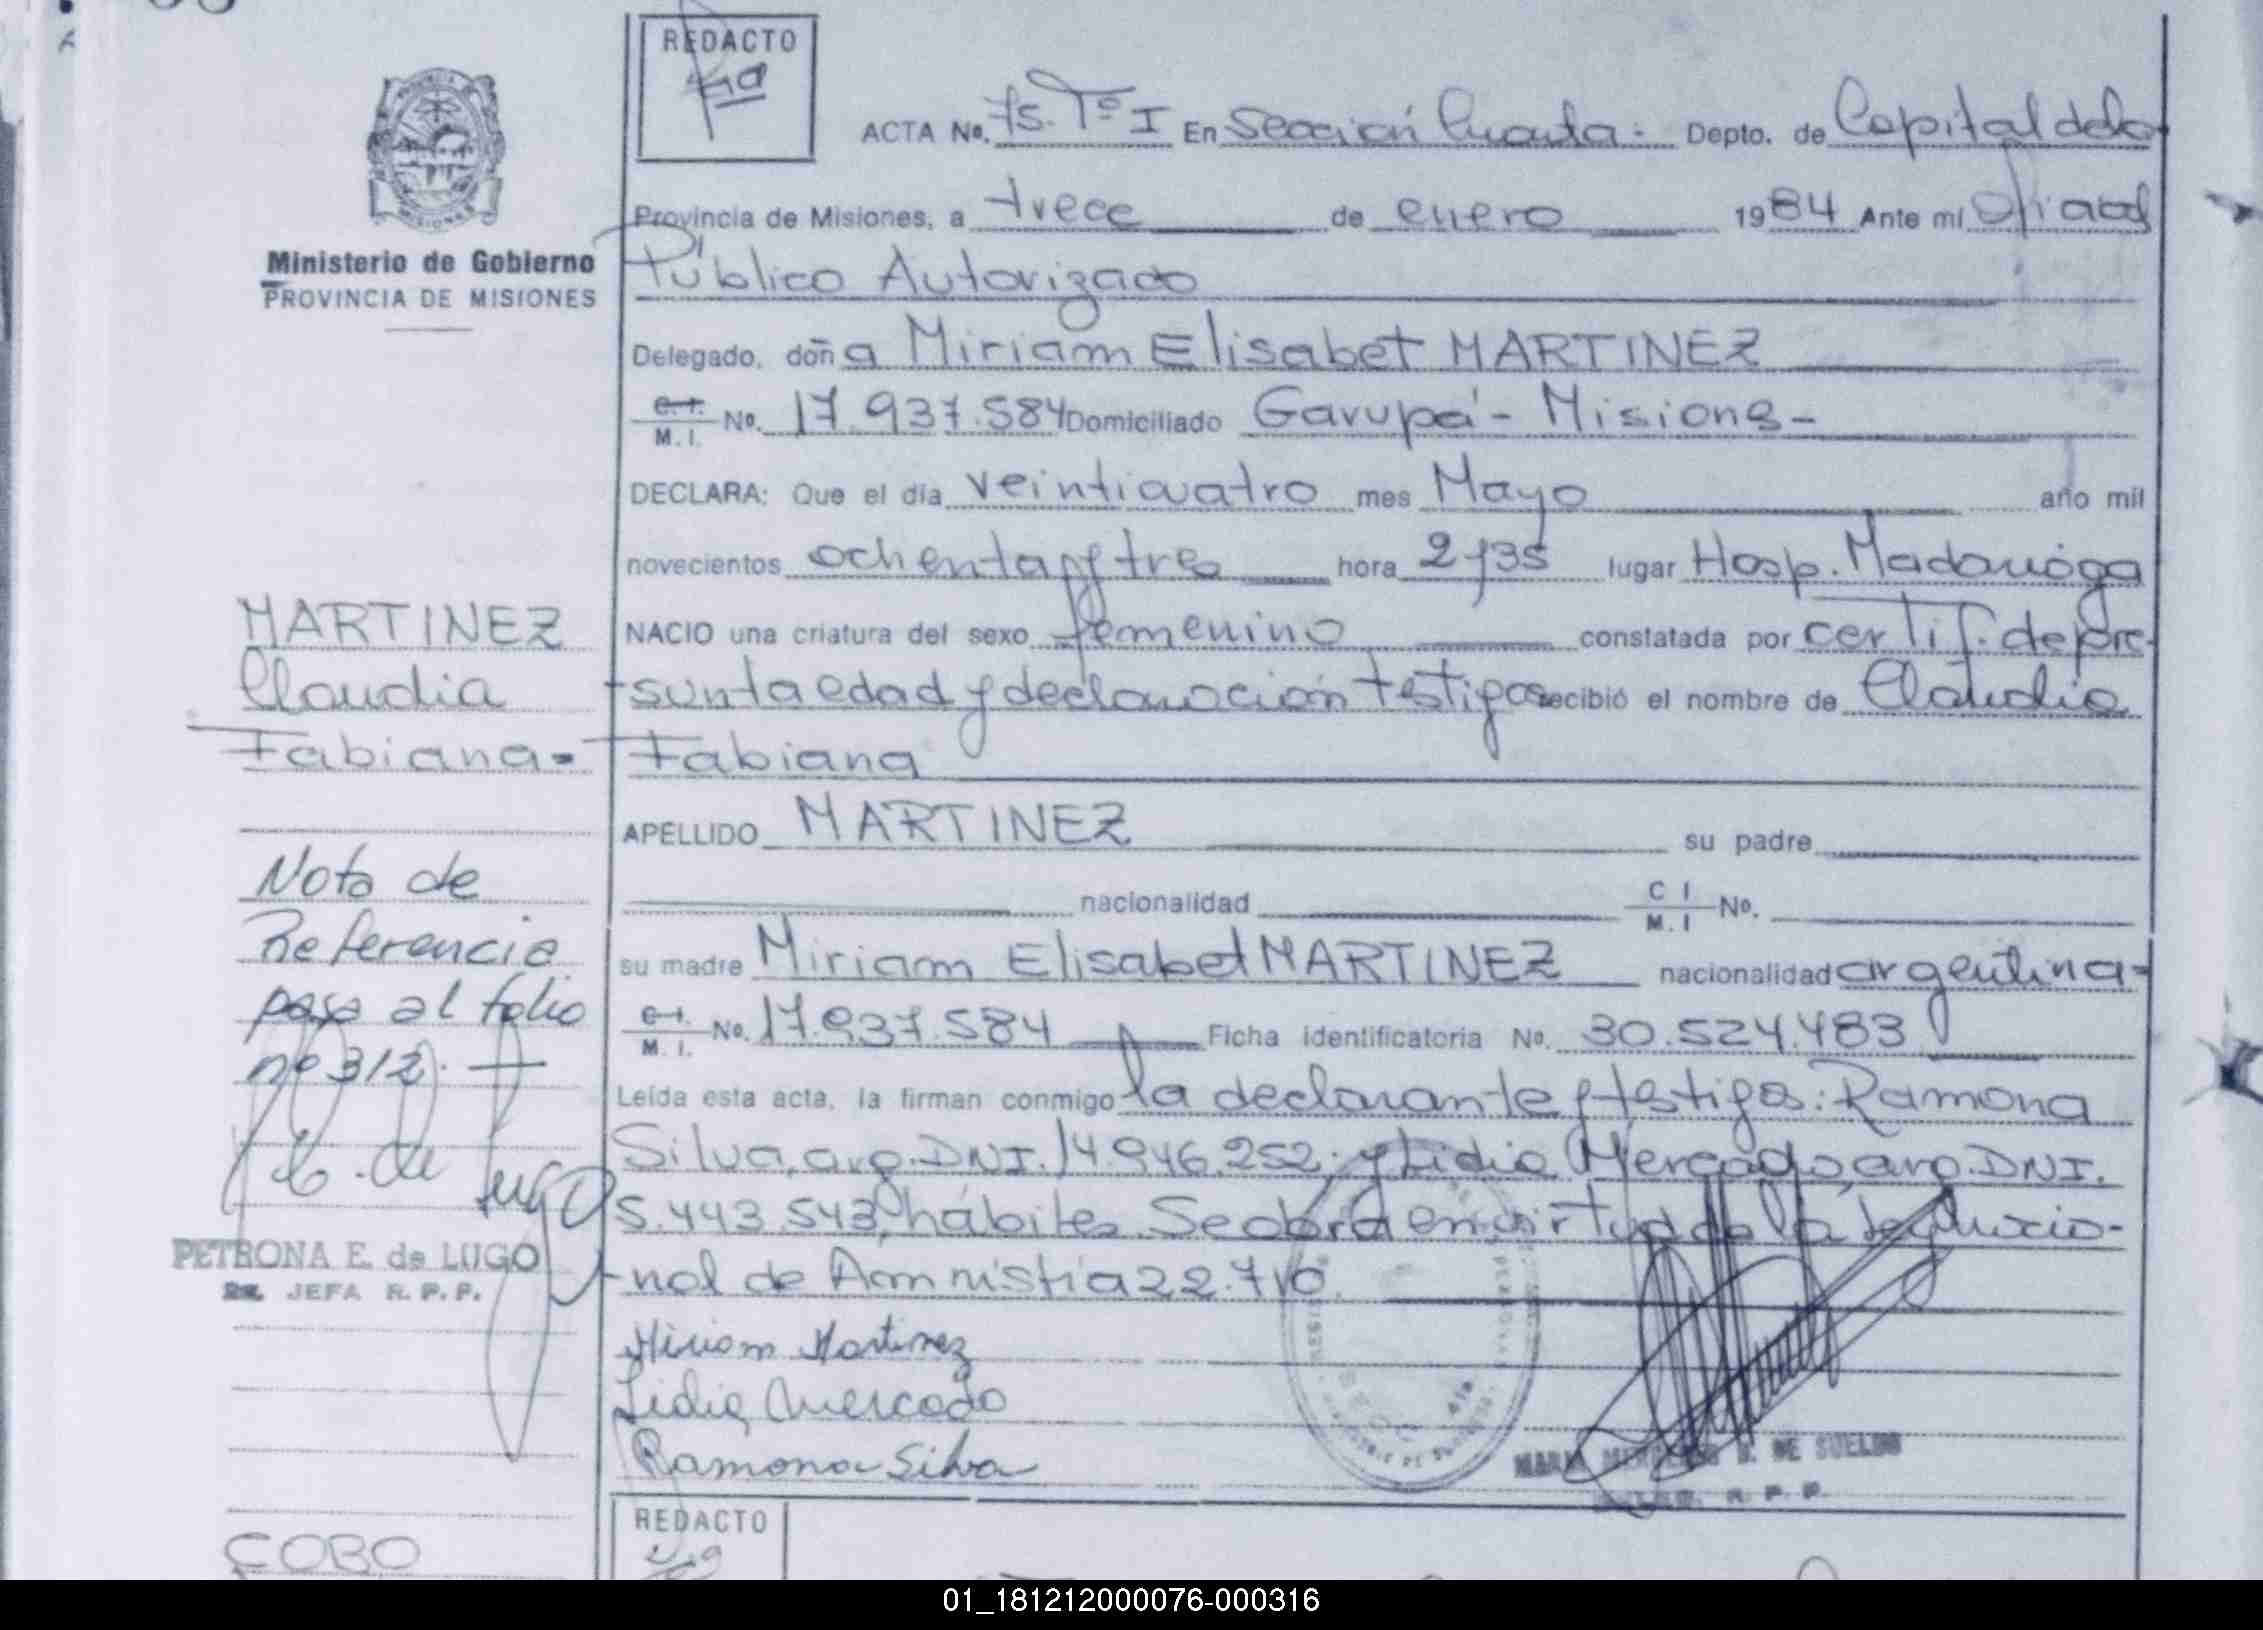 REDACTO
ACTA No. 75. Tº I En Sección Cuarta. Depto. de Capital de la
Provincia de Misiones, a trece de enero 1984 Ante mí Oficial
Público Autorizado
Ministerio de Gobierno
PROVINCIA DE MISIONES
Delegado, doña Miriam Elisabet MARTINEZ
C. I. M. I. No. 17.937.584 Domiciliado Garupá - Misiones -
DECLARA: Que el día veinticuatro mes Mayo año mil
novecientos ochenta y tres hora 2y35 lugar Hosp. Madariaga
NACIO una criatura del sexo femenino constatada por certif. de pre-
sunta edad y declaración testigos recibió el nombre de Claudia
Fabiana
APELLIDO MARTINEZ su padre
nacionalidad C I M. I No.
su madre Miriam Elisabet MARTINEZ nacionalidad argentina-
C. I. M. I. No. 17.937.584 Ficha identificatoria No. 30.524.483
Leída esta acta, la firman conmigo la declarante y testigos: Ramona
Silva, arg. DNI. 14.946.252; y Lidia Mercado, arg. DNI.
5.443.543, hábiles. Se labra en virtud de la Ley Nacio-
nal de Amnistia 22.710.
Miriam Martinez
Lidia Mercado
Ramona Silva
MARTINEZ
Claudia
Fabiana=
Nota de
Referencia
pasa al folio
nº 312.
E. de Lugo
PETRONA E. de LUGO
JEFA R. P. P.
DE SUELDO
R. P. P.
REDACTO
COBO
01_181212000076-000316